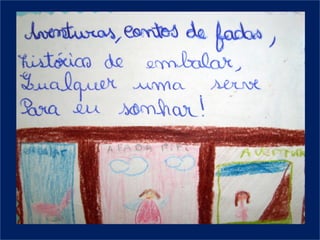 Aventuras, contos de fadas,
histórias de embalar,
Qualquer uma serve
Para eu sonhar!
EMBALAR
A FADA PIPI
AVENTURA